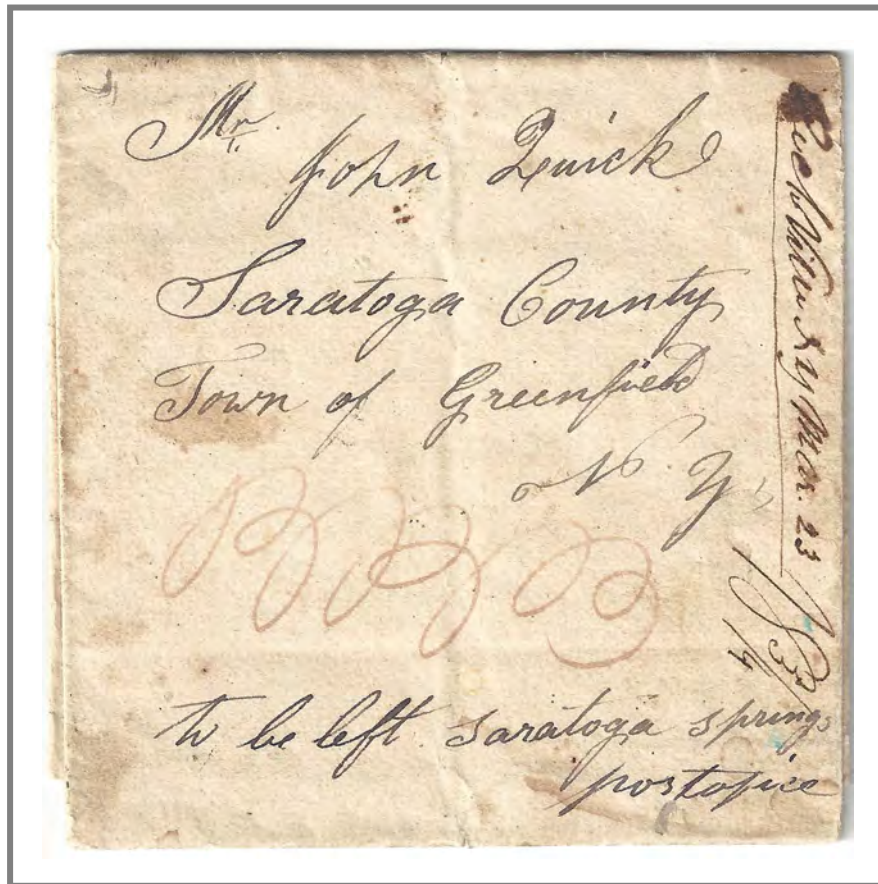 Mr.
John Quick
Saratoga County
Town of Greenfield
N. Y
to be left Saratoga springs
postofice
N Y Mar. 23
18 3/4